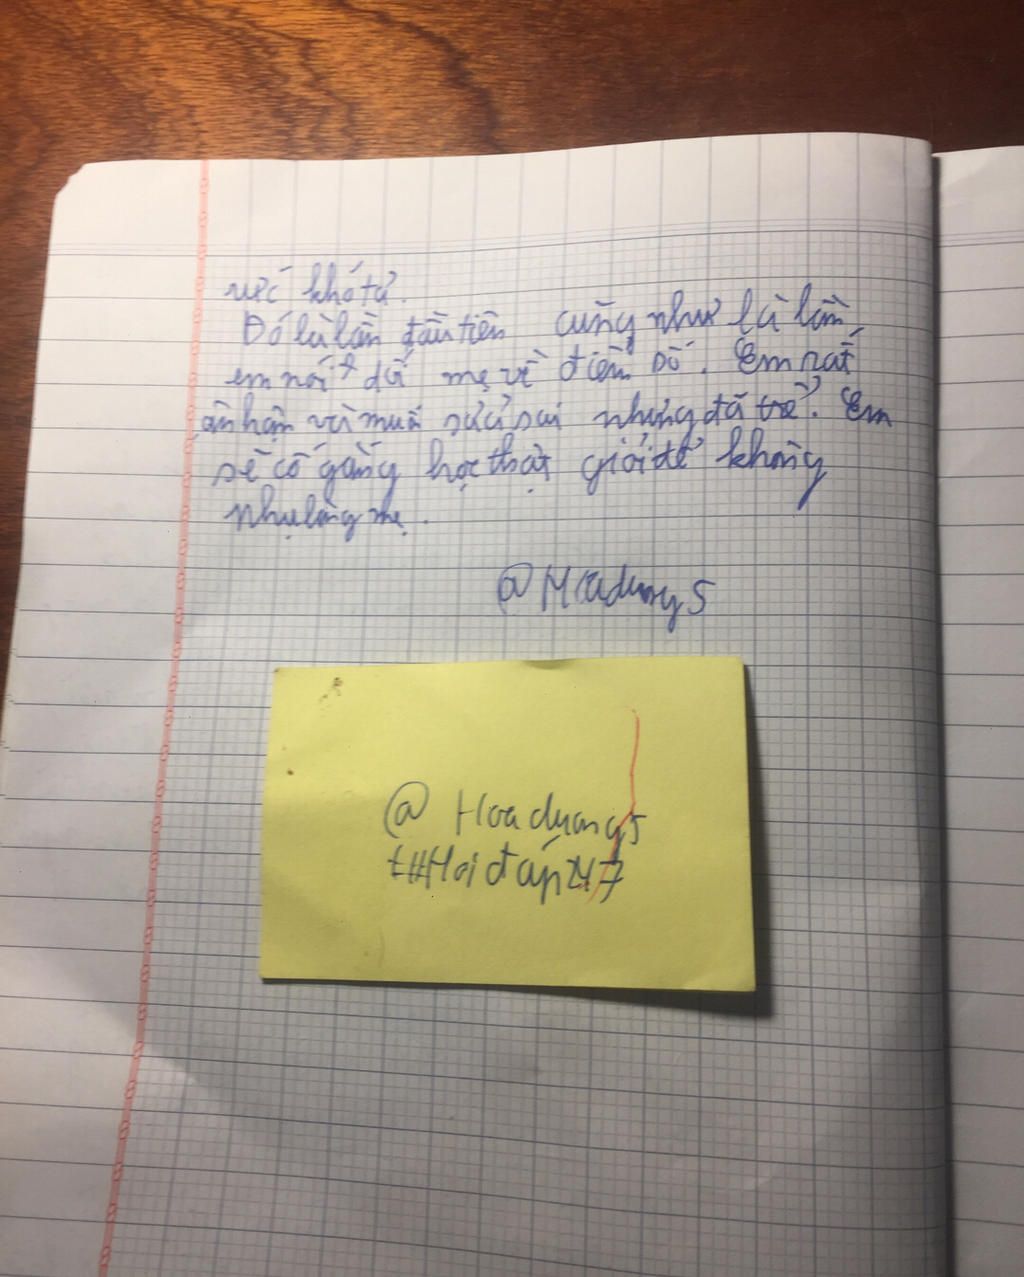 khó tả.
Đó là lần đầu tiên cũng như là lần
em nói dối mẹ về điểm số. Em rất
ân hận và muốn sửa sai nhưng đã trễ. Em
sẽ cố gắng học thật giỏi để không
phụ lòng mẹ.
@Hoaduong5
@Hoaduong5
t#Hoiđáp247